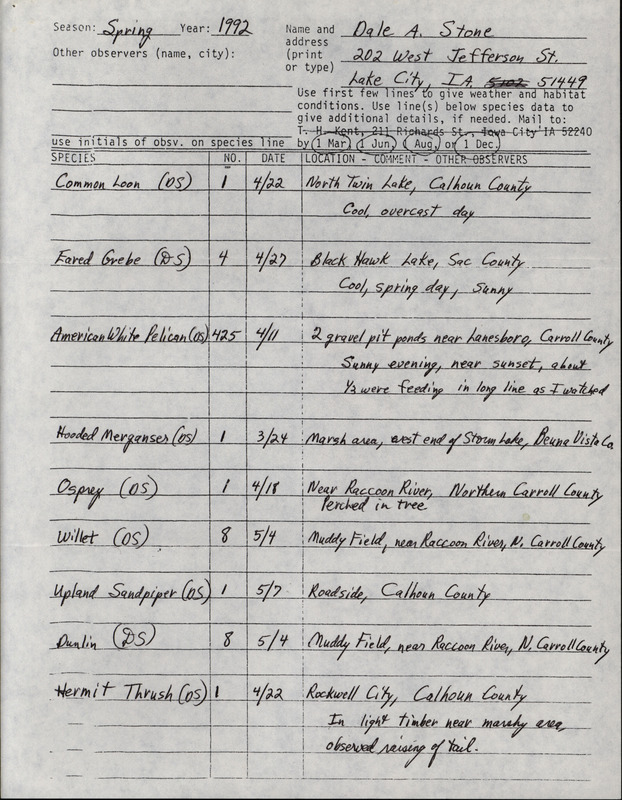 Season: Spring Year: 1992 Name and Dale A. Stone
address
Other observers (name, city): (print 202 West Jefferson St.
or type)
Lake City, IA 51449
Use first few lines to give weather and habitat
conditions. Use line(s) below species data to
give additional details, if needed. Mail to:
T. H. Kent, 211 Richards St., Iowa City IA 52240
use initials of obsv. on species line by 1 Mar, 1 Jun, 1 Aug, or 1 Dec.
SPECIES NO. DATE LOCATION - COMMENT - OTHER OBSERVERS
Common Loon (DS) 1 4/22 North Twin Lake, Calhoun County
Cool, overcast day
Eared Grebe (DS) 4 4/27 Black Hawk Lake, Sac County
Cool, spring day, sunny
American White Pelican (DS) 425 4/11 2 gravel pit ponds near Lanesboro, Carroll County
Sunny evening, near sunset, about
1/2 were feeding in long line as I watched
Hooded Merganser (DS) 1 3/24 Marsh area, west end of Storm Lake, Beuna Vista Co.
Osprey (DS) 1 4/18 Near Raccoon River, Northern Carroll County
Perched in tree
Willet (DS) 8 5/4 Muddy Field, near Raccoon River, N. Carroll County
Upland Sandpiper (DS) 1 5/7 Roadside, Calhoun County
Dunlin (DS) 8 5/4 Muddy Field, near Raccoon River, N. Carroll County
Hermit Thrush (DS) 1 4/22 Rockwell City, Calhoun County
In light timber near marshy area,
observed raising of tail.